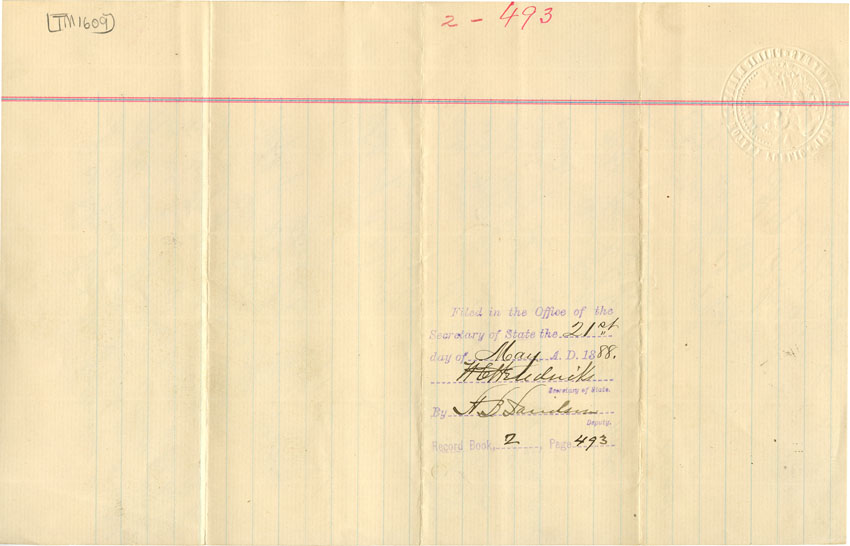 TM1609
2 - 493
Filed in the Office of the
Secretary of State the 21st
day of May A. D. 1888.
Secretary of State.
By N B Davidson
Deputy.
Record Book, 2, Page 493